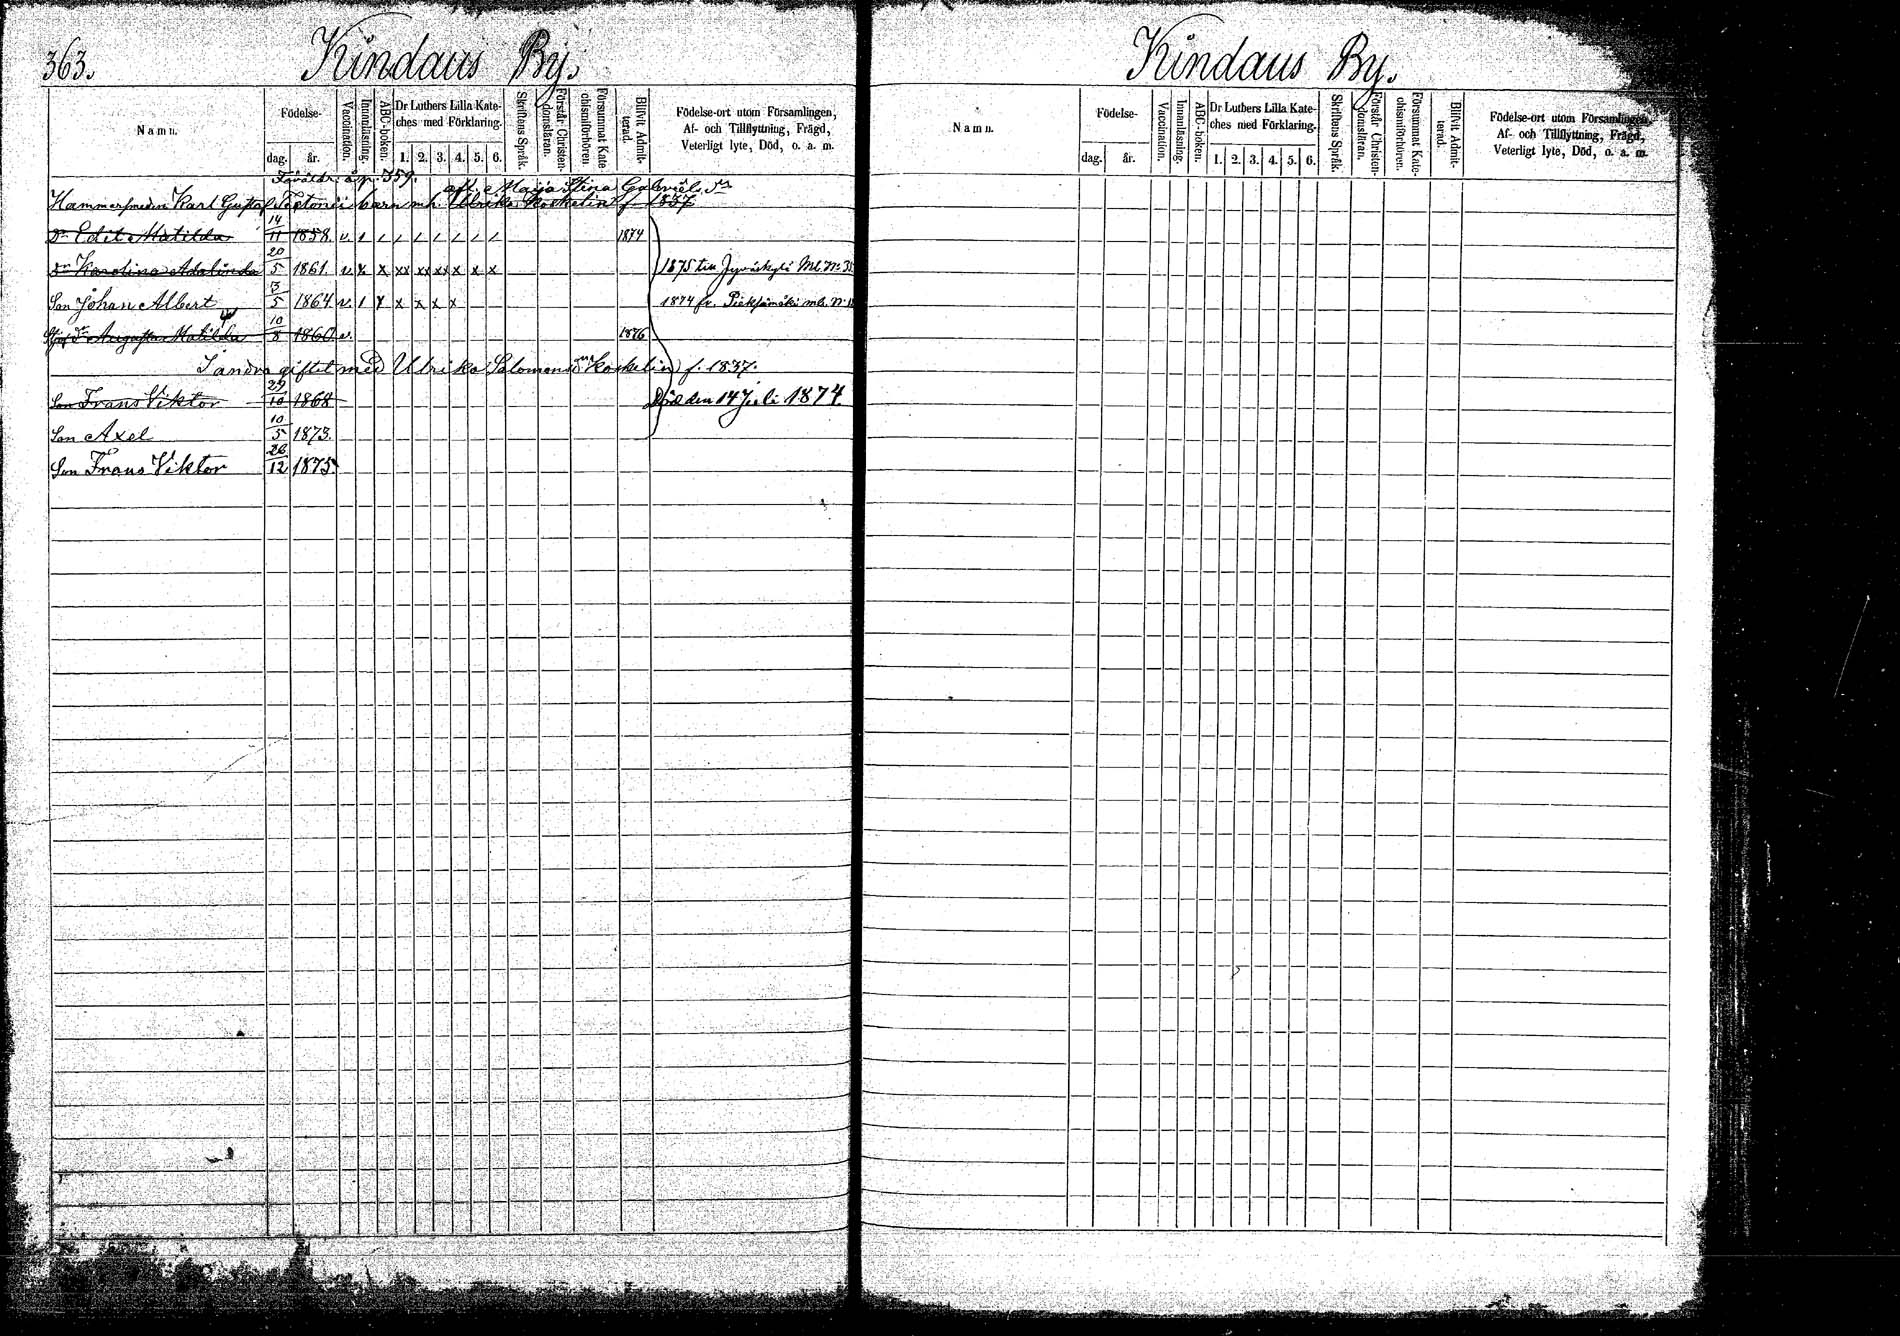 363.
Kindaus By.
Namn.
Födelse-
dag.
år.
Vaccination.
Innanläsning.
ABC-boken.
Dr Luthers Lilla Kate-
ches med Förklaring.
1. 2. 3. 4. 5. 6.
Skriftens Språk.
Förstår Christen-
domsläran.
Försummat Kate
chismiförhören.
Blifvit Admit-
terad.
Födelse-ort utom Församlingen,
Af- och Tillflyttning, Frägd,
Veterligt lyte, Död, o. a. m.
Föräldr. å p. 359.
aft. Maija Stina Gabriels dr
Hammersmeden Karl Gustaf barn m. h. Ulrika Koskelin f 1837
Dr Edit Matilda 14/11 1858. v. 1 / / / / / / / 1874
Dr Karolina Adalinda 20/5 1861. v. x x xx xx xx x x x 1875 till Jyväskylä Mb. No 35
Son Johan Albert 3/5 1864 v. 1 x x x x x 1874 fr. Pieksämäki mb. No
Styf dr Augusta Matilda 10/8 1860 v. 1876
I andra giftet med Ulrika Salomonsdr Koskelin f. 1837.
Son Frans Viktor 29/10 1868 Död den 14 Juli 1874.
Son Axel 10/5 1873.
Son Frans Viktor 26/12 1875
Kindaus By.
Namn.
Födelse-
dag.
år.
Vaccination.
Innanläsning.
ABC-boken.
Dr Luthers Lilla Kate-
ches med Förklaring.
1. 2. 3. 4. 5. 6.
Skriftens Språk.
Förstår Christen-
domsläran.
Försummat Kate-
chismiförhören.
Blifvit Admit-
terad.
Födelse-ort utom Församlingen,
Af- och Tillflyttning, Frägd,
Veterligt lyte, Död, o. a. m.